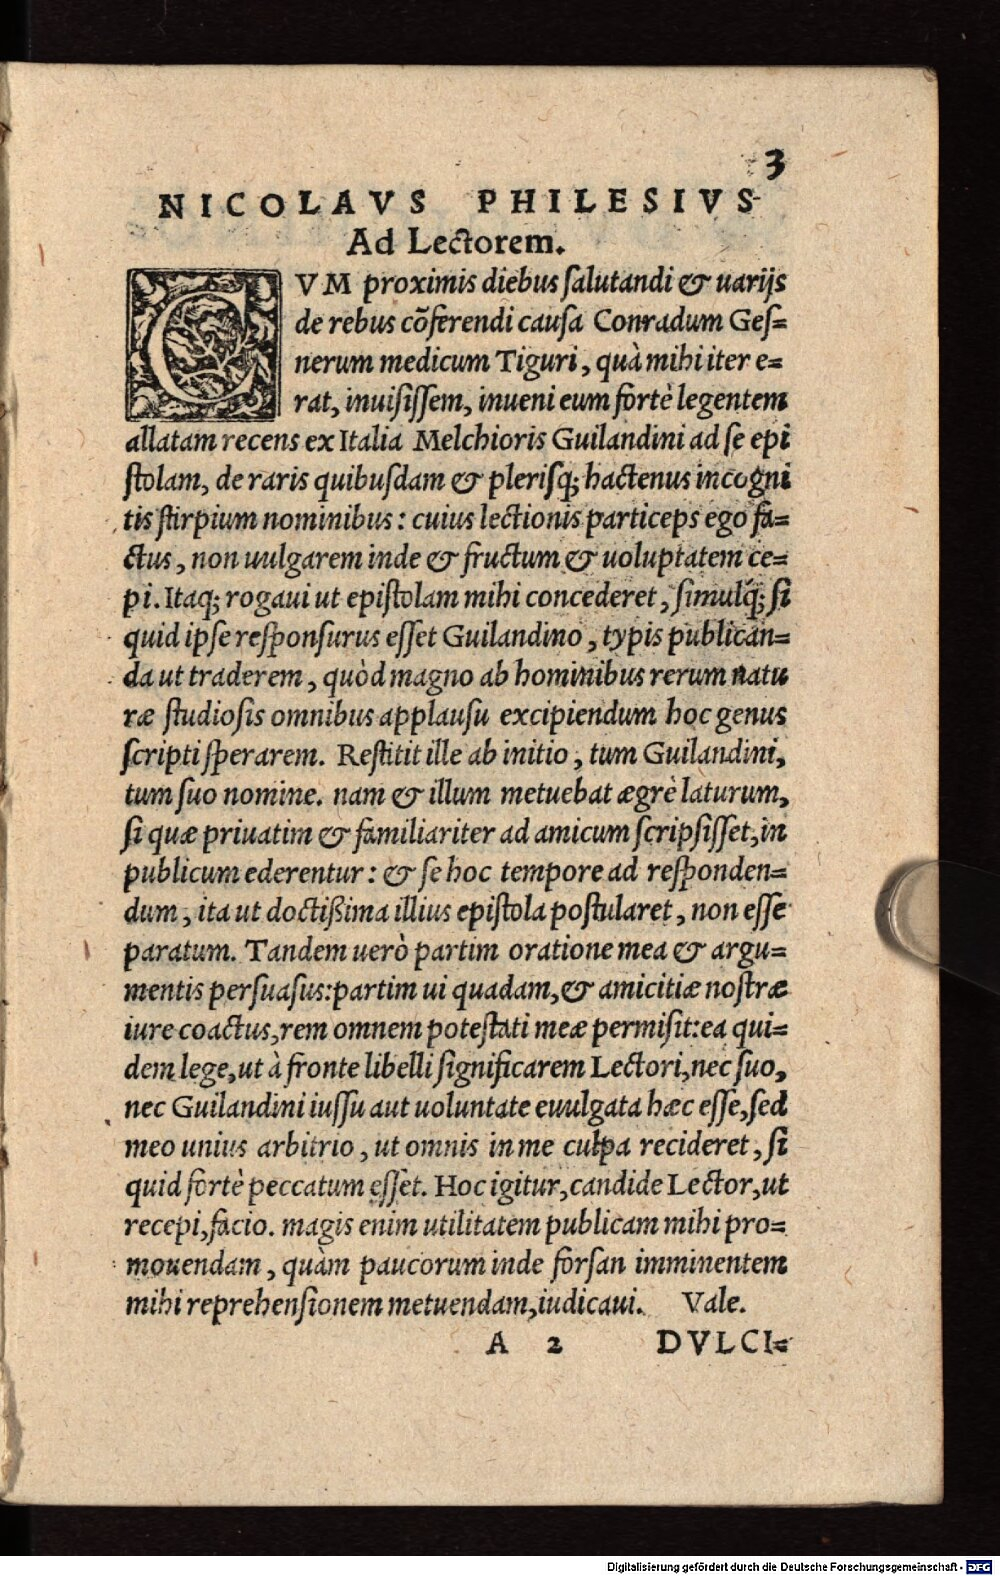 3
NICOLAVS PHILESIVS
Ad Lectorem.
CVM proximis diebus ſalutandi & uarijs
de rebus cõferendi cauſa Conradum Geſ=
nerum medicum Tiguri, quà mihi iter e=
rat, inuiſiſſem, inueni eum fortè legentem
allatam recens ex Italia Melchioris Guilandini ad ſe epi
ſtolam, de raris quibuſdam & pleriſq; hactenus incogni
tis ſtirpium nominibus: cuius lectionis particeps ego fa=
ctus, non uulgarem inde & fructum & uoluptatem ce=
pi. Itaq; rogaui ut epiſtolam mihi concederet, ſimulq́; ſi
quid ipſe reſponſurus eſſet Guilandino, typis publican=
da ut traderem, quòd magno ab hominibus rerum natu
ræ ſtudioſis omnibus applauſu excipiendum hoc genus
ſcripti ſperarem. Reſtitit ille ab initio, tum Guilandini,
tum ſuo nomine. nam & illum metuebat ægrè laturum,
ſi quæ priuatim & familiariter ad amicum ſcripſiſſet, in
publicum ederentur: & ſe hoc tempore ad reſponden=
dum, ita ut doctißima illius epiſtola poſtularet, non eſſe
paratum. Tandem uerò partim oratione mea & argu=
mentis perſuaſus: partim ui quadam, & amicitiæ noſtræ
iure coactus, rem omnem poteſtati meæ permiſit: ea qui=
dem lege, ut à fronte libelli ſignificarem Lectori, nec ſuo,
nec Guilandini iuſſu aut uoluntate euulgata hæc eſſe, ſed
meo unius arbitrio, ut omnis in me culpa recideret, ſi
quid fortè peccatum eſſet. Hoc igitur, candide Lector, ut
recepi, facio. magis enim utilitatem publicam mihi pro=
mouendam, quàm paucorum inde forſan imminentem
mihi reprehenſionem metuendam, iudicaui. Vale.
A 2 DVLCI=
Digitalisierung gefördert durch die Deutsche Forschungsgemeinschaft - DFG